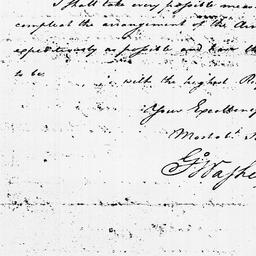 I shall take every possible mean
compleat the arrangement of the Arm
expeditiously as possible and have th
to be
with the highest Re
Your Excellency
Most obt. S
Go Washi